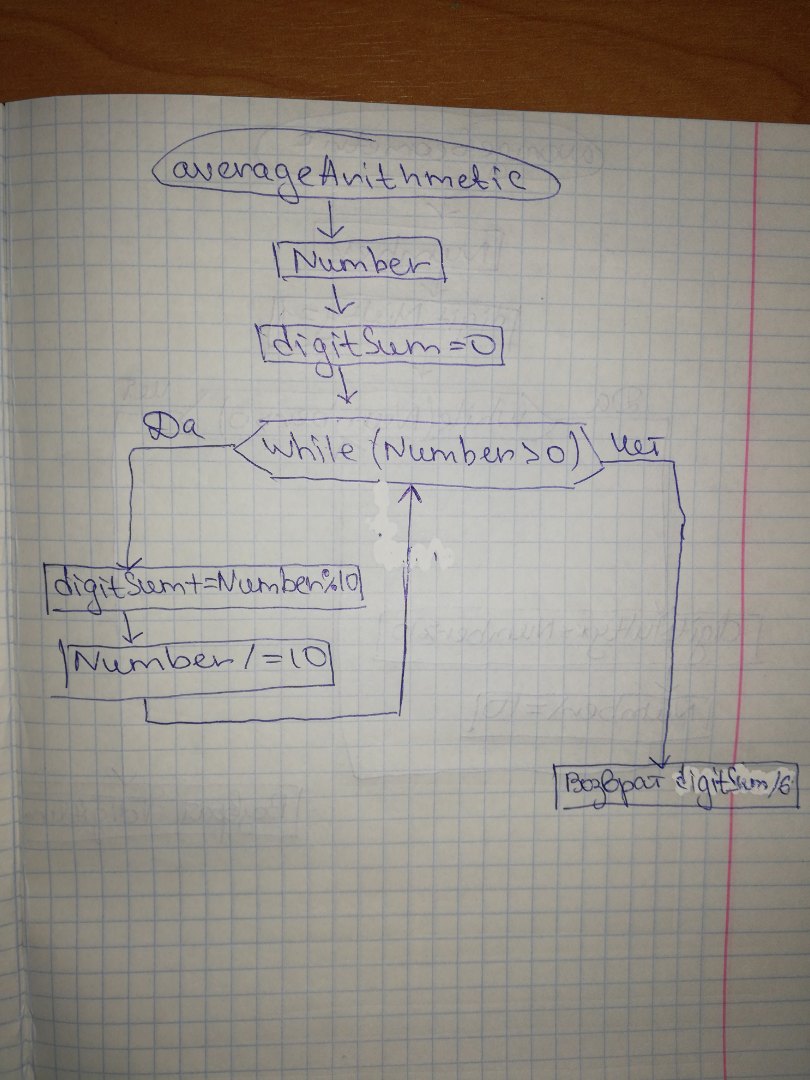 averageArithmetic
Number
digitSum=0
Да
while (Number>0)
нет
digitSum+=Number%10
Number/=10
Возврат digitSum/6